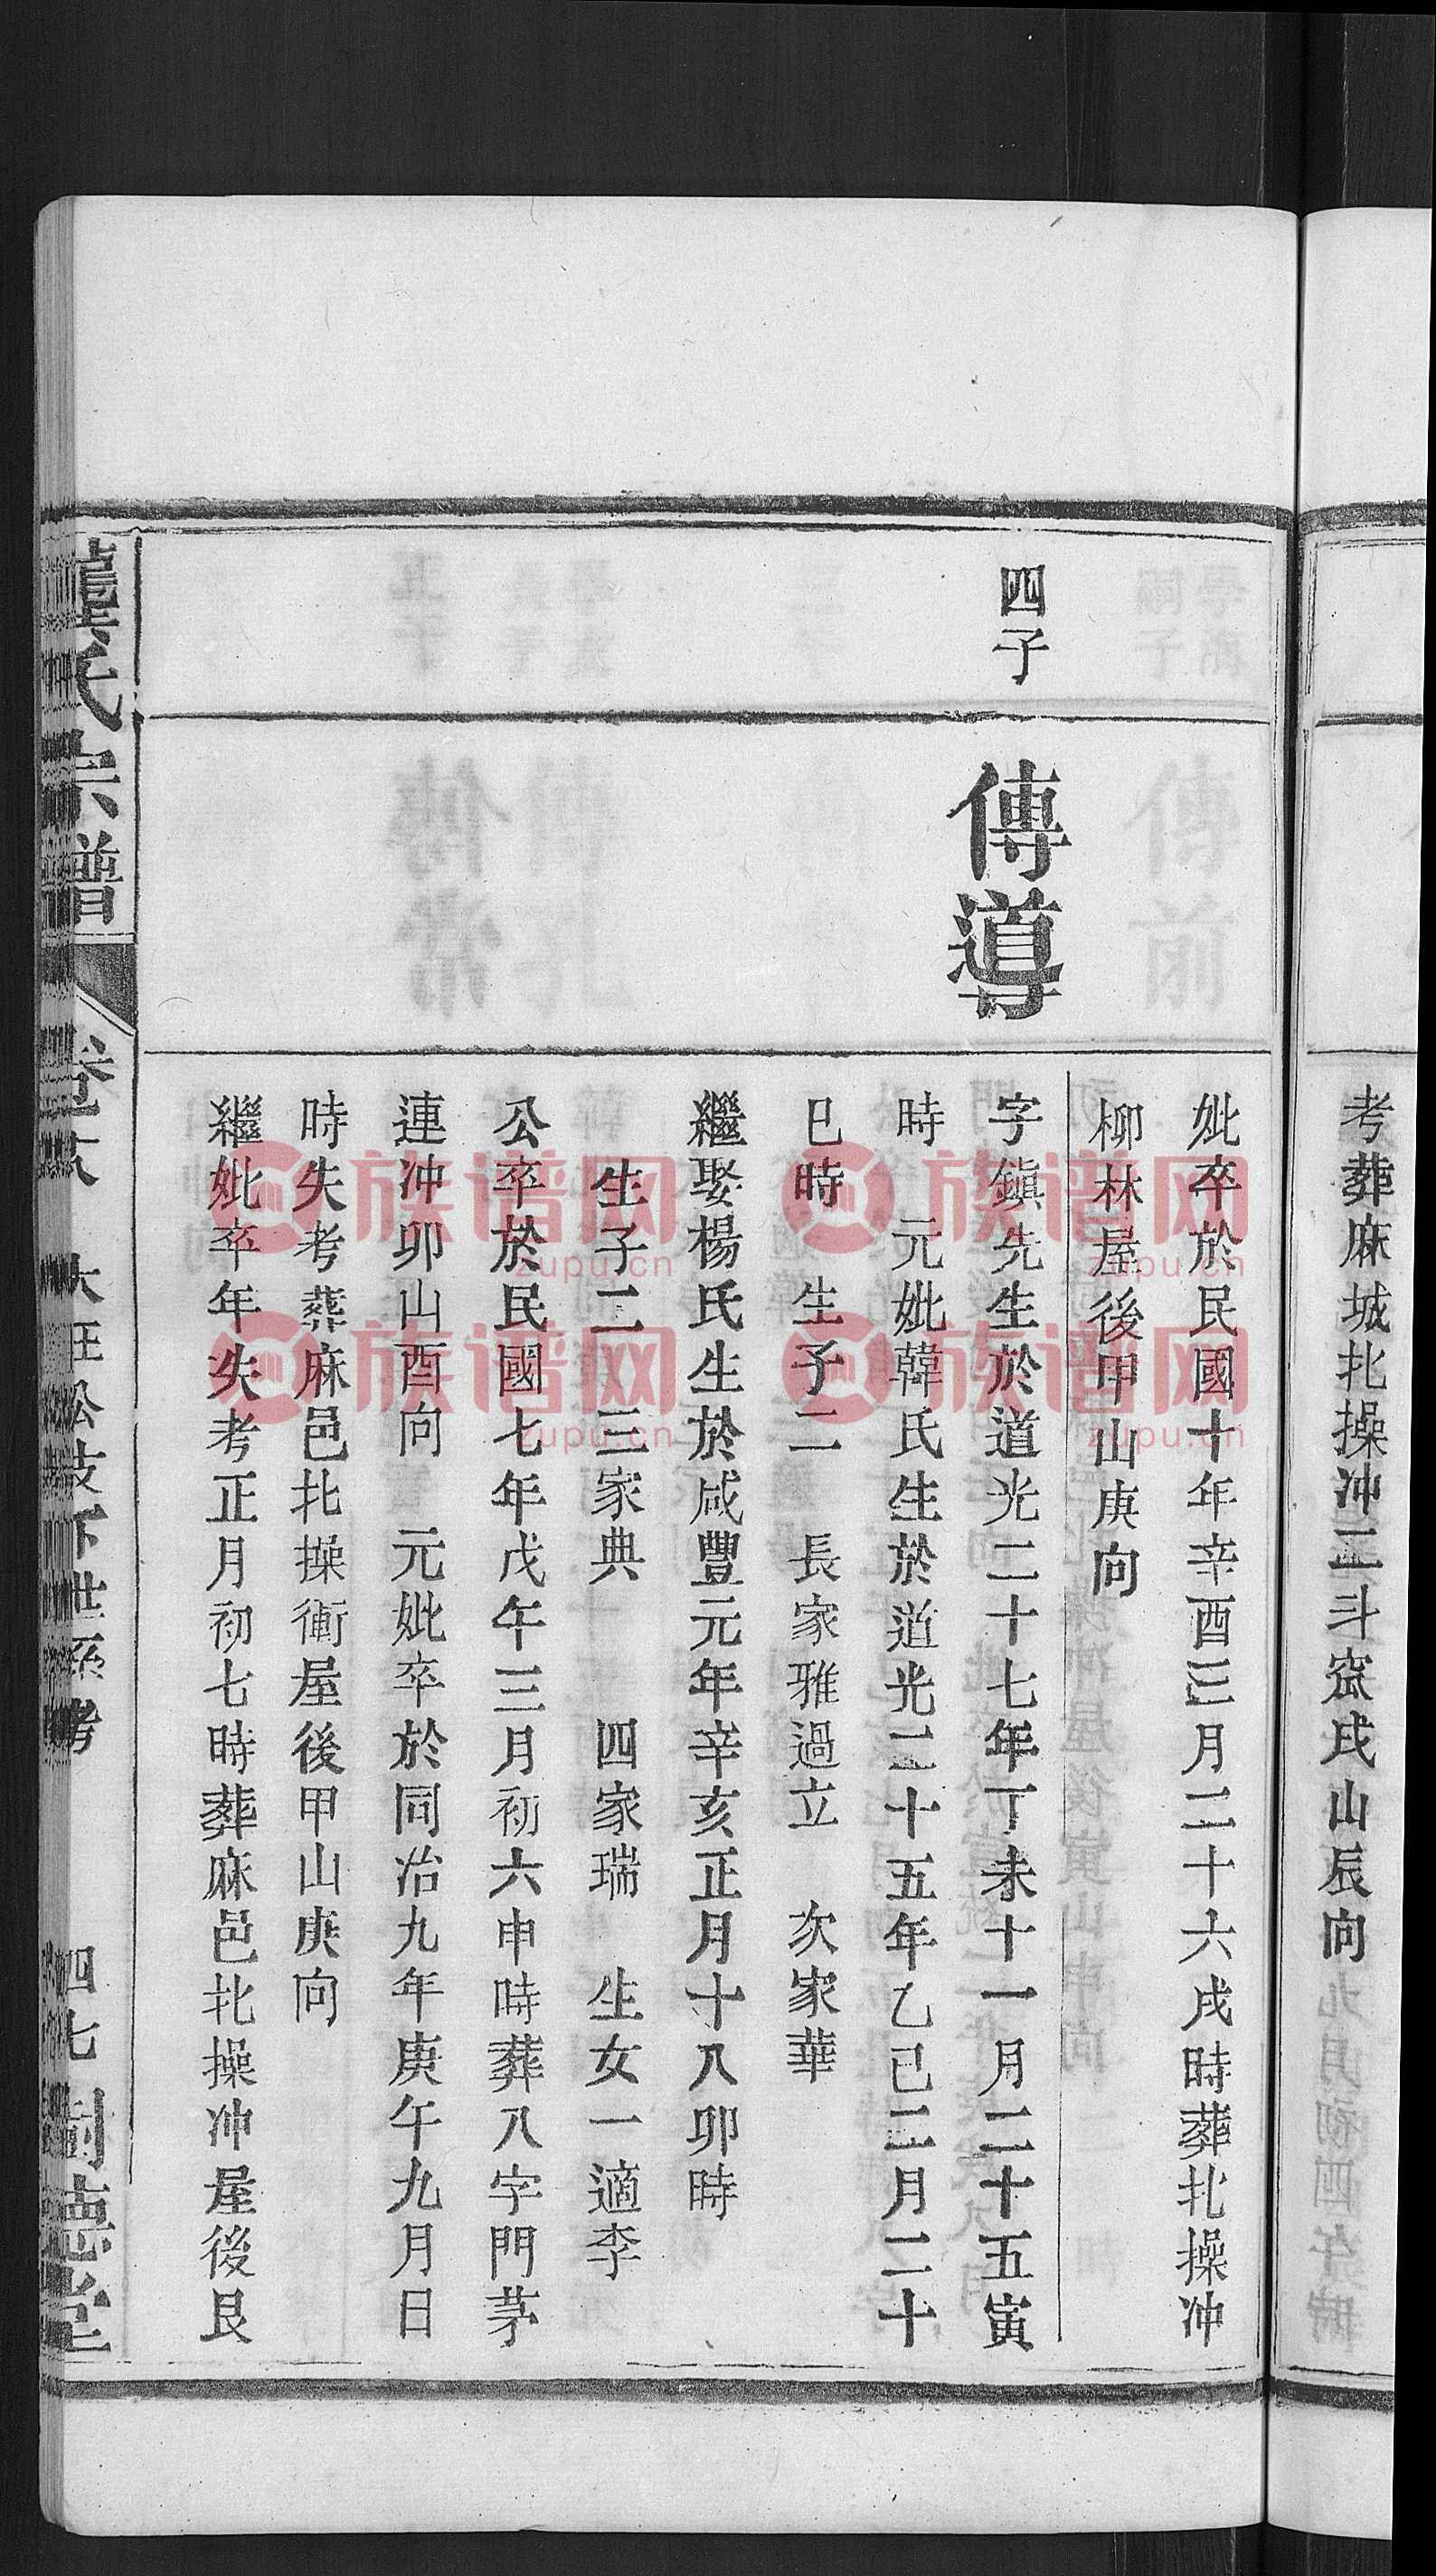 考葬麻城北操冲二斗窊戌山辰向
妣卒於民國十年辛酉三月二十六戌時葬北操冲
柳林屋後甲山庚向
四子
傳導
字鎮先生於道光二十七年丁未十一月二十五寅
時 元妣韓氏生於道光二十五年乙巳二月二十
巳時 生子二 長家雅過立 次家華
繼娶楊氏生於咸豐元年辛亥正月十八卯時
生子二 三家典 四家瑞 生女一適李
公卒於民國七年戊午三月初六申時葬八字門茅
連冲卯山酉向 元妣卒於同治九年庚午九月日
時失考葬麻邑北操衝屋後甲山庚向
繼妣卒年失考正月初七時葬麻邑北操冲屋後艮
龔氏宗譜
大旺公支下世系考
四七
樹德堂
族谱网 zupu.cn
族谱网 zupu.cn
族谱网 zupu.cn
族谱网 zupu.cn